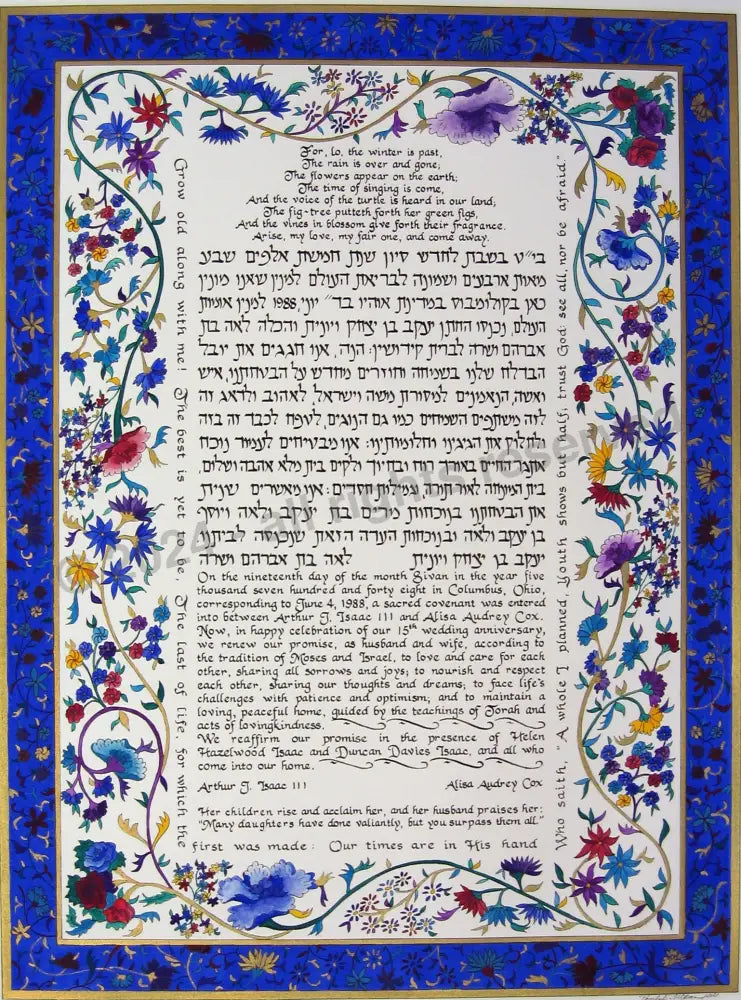 For, lo, the winter is past,
The rain is over and gone;
The flowers appear on the earth;
The time of singing is come,
And the voice of the turtle is heard in our land;
The fig-tree putteth forth her green figs,
And the vines in blossom give forth their fragrance.
Arise, my love, my fair one, and come away.
בי״ט בשבת לחדש סיון שנת חמשת אלפים שבע
מאות ארבעים ושמונה לבריאת העולם למנין שאנו מונין
כאן בקולומבוס במדינת אוהיו בד״ יוני, 1988 למנין אומות
העולם, נכנסו החתן יעקב בן יצחק ויונית והכלה לאה בת
אברהם ושרה לברית קידושין: הנה, אנו חגגים את יובל
הבדלח שלנו בשמיחה וחוזרים מחדש על הבטחתנו, איש
ואשה, הנאמנים למסורת משה וישראל, לאהוב ולדאג זה
לזה משתתפים השמחים כמו גם הנוגים, לטפח לכבד זה בזה
ולחלוק את הגיגינו וחלומותינו: אנו מבטיחים לעמוד נוכח
אתגר החיים באורך רוח ובחיוך ולקים בית מלא אהבה ושלום,
בית המונחה לאור תורה, גמילות חסדים: אנו מאשרים שנית
את הבטחתנו בנוכחות בת יעקב ולאה ויוסף
בן יעקב ולאה ובנוכחות העדה הזאת שנכנסה לביתנו
יעקב בן יצחק ויונית לאה בת אברהם ושרה
On the nineteenth day of the month Sivan in the year five
thousand seven hundred and forty eight in Columbus, Ohio,
corresponding to June 4, 1988, a sacred covenant was entered
into between Arthur J. Isaac III and Alisa Audrey Cox.
Now, in happy celebration of our 15th wedding anniversary,
we renew our promise, as husband and wife, according to
the tradition of Moses and Israel, to love and care for each
other, sharing all sorrows and joys; to nourish and respect
each other, sharing our thoughts and dreams; to face life's
challenges with patience and optimism; and to maintain a
loving, peaceful home, guided by the teachings of Torah and
acts of lovingkindness.
We reaffirm our promise in the presence of Helen
Hazelwood Isaac and Duncan Davies Isaac, and all who
come into our home.
Arthur J. Isaac III Alisa Audrey Cox
Her children rise and acclaim her, and her husband praises her:
"Many daughters have done valiantly, but you surpass them all."
Grow old along with me! The best is yet to be, The last of life for which the
first was made: Our times are in His hand
Who saith, "A whole I planned, Youth shows but half; trust God: see all, nor be afraid."
© 2024 all rights reserved